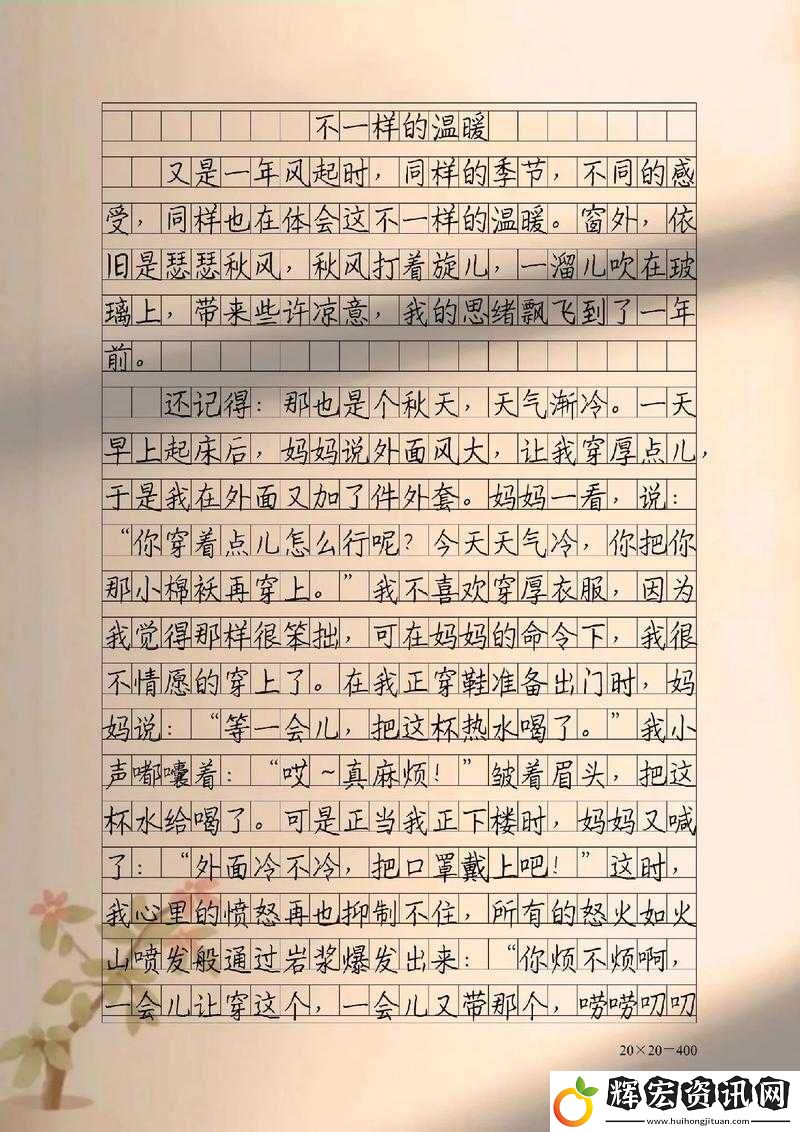 不一样的温暖
又是一年风起时，同样的季节，不同的感
受，同样也在体会这不一样的温暖。窗外，依
旧是瑟瑟秋风，秋风打着旋儿，一溜儿吹在玻
璃上，带来些许凉意，我的思绪飘飞到了一年
前。
还记得：那也是个秋天，天气渐冷。一天
早上起床后，妈妈说外面风大，让我穿厚点儿，
于是我在外面又加了件外套。妈妈一看，说：
“你穿着点儿怎么行呢？今天天气冷，你把你
那小棉袄再穿上。”我不喜欢穿厚衣服，因为
我觉得那样很笨拙，可在妈妈的命令下，我很
不情愿的穿上了。在我正穿鞋准备出门时，妈
妈说：“等一会儿，把这杯热水喝了。”我小
声嘟囔着：“哎～真麻烦！”皱着眉头，把这
杯水给喝了。可是正当我正下楼时，妈妈又喊
了：“外面冷不冷，把口罩戴上吧！”这时，
我心里的愤怒再也抑制不住，所有的怒火如火
山喷发般通过岩浆爆发出来：“你烦不烦啊，
一会儿让穿这个，一会儿又带那个，唠唠叨叨
20×20=400
辉宏资讯网
www.huihongjituan.com